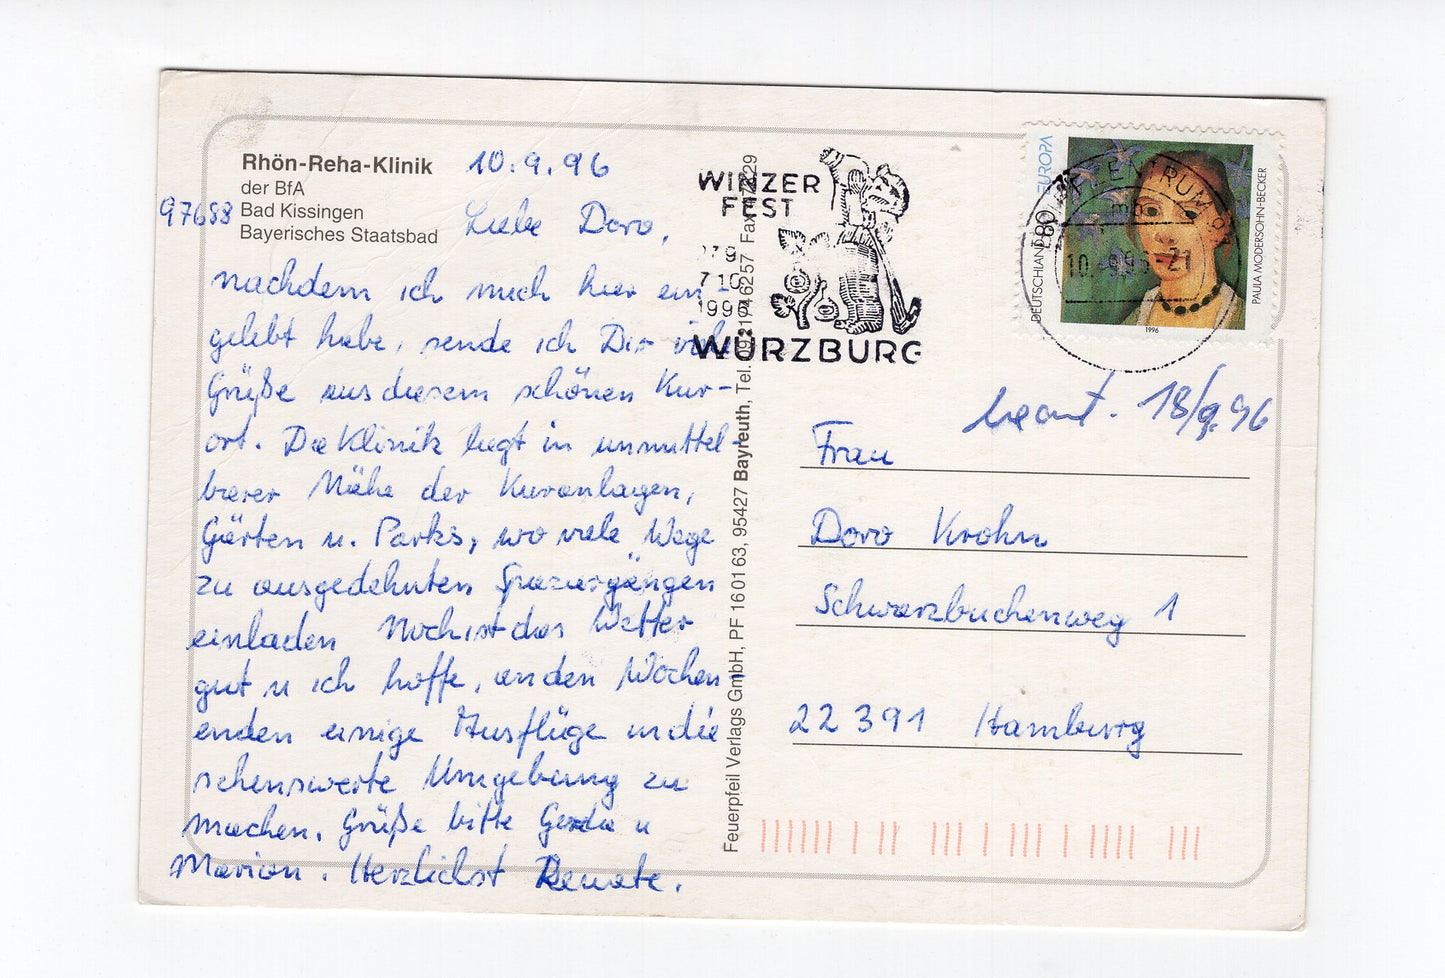 Rhön-Reha-Klinik
der BfA
97688 Bad Kissingen
Bayerisches Staatsbad
10.9.96
Liebe Doro,
nachdem ich mich hier ein
gelebt habe, sende ich Dir viele
Grüße aus diesem schönen Kur-
ort. Die Klinik liegt in unmittel-
barer Nähe der Kuranlagen,
Gärten u. Parks, wo viele Wege
zu ausgedehnten Spaziergängen
einladen Noch ist das Wetter
gut u ich hoffe, an den Wochen-
enden einige Ausflüge in die
sehenswerte Umgebung zu
machen. Grüße bitte Gerda u
Marion. Herzlichst Renate.
Feuerpfeil Verlags GmbH, PF 160163, 95427 Bayreuth, Tel. 46257 Fax 29
WINZER
FEST
1996
WÜRZBURG
EUROPA
DEUTSCHLAND
PAULA MODERSOHN-BECKER
1996
10.-9.96-21
beant. 18/9.96
Frau
Doro Krohn
Schwarzbuchenweg 1
22391 Hamburg